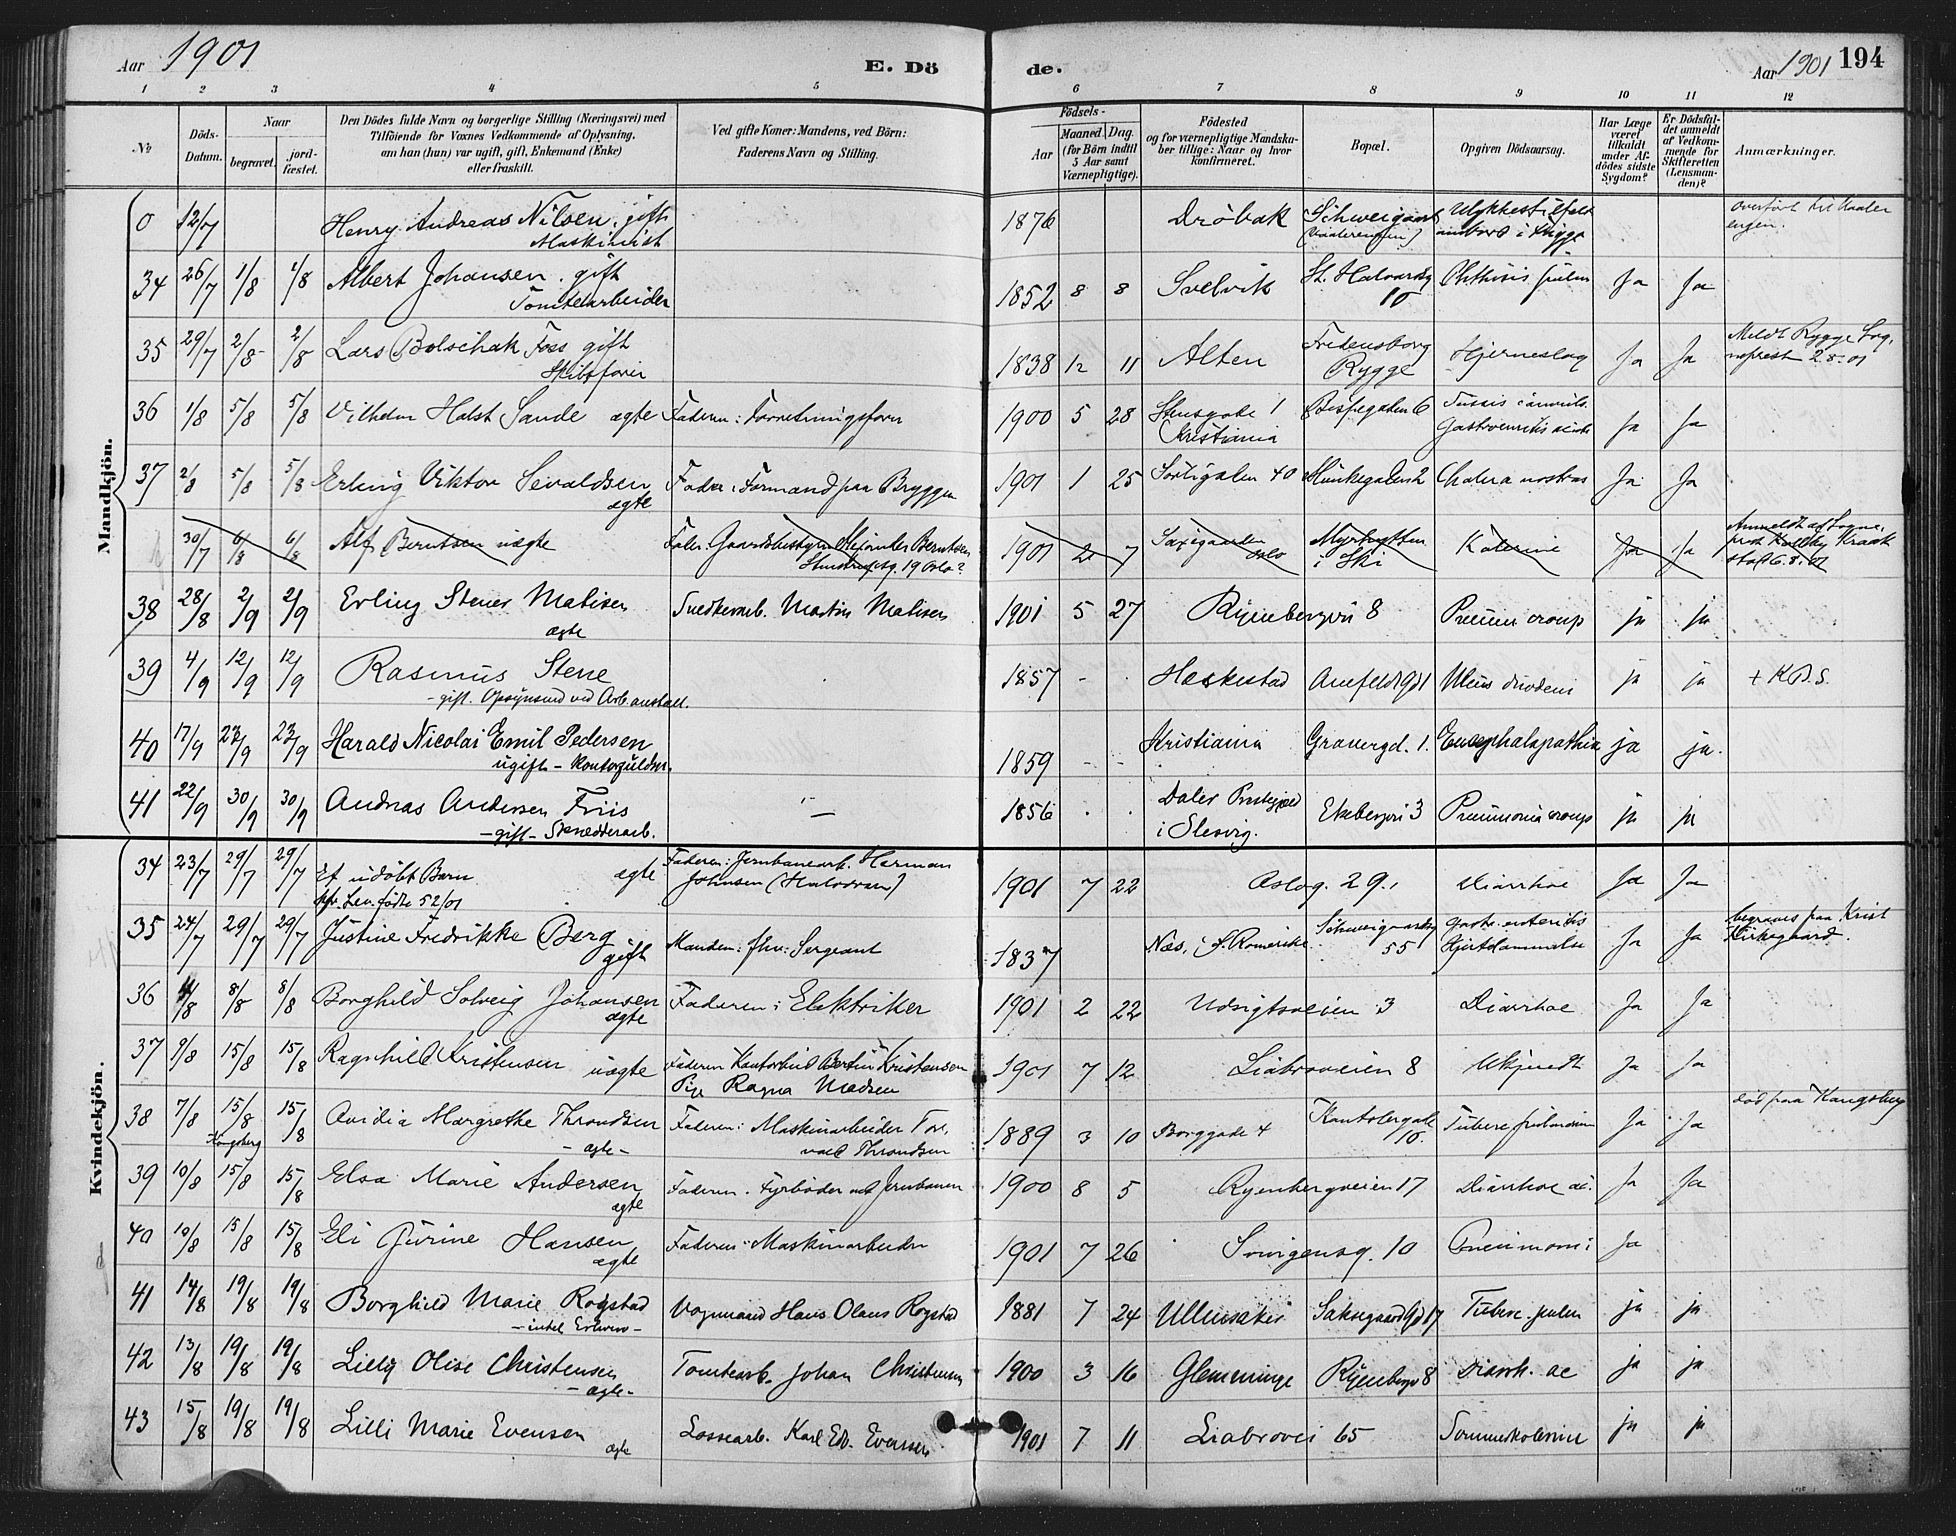 Aar 1901 E. Dö de. Aar 1901 194
1 2 3 4 5 6 7 8 9 10 11 12
No
Döds-Datum.
Naar
begravet.
jord-fæstet.
Den Dödes fulde Navn og borgerlige Stilling (Næringsvei) med
Tilföiende for Voxnes Vedkommende af Oplysning,
om han (hun) var ugift, gift, Enkemand (Enke)
eller fraskilt.
Ved gifte Koner: Mandens, ved Börn:
Faderens Navn og Stilling.
Födsels-
Aar
Maaned. Dag.
(for Börn indtil
5 Aar samt
Værnepligtige).
Födested
og for værnepligtige Mandska-
ber tillige: Naar og hvor
konfirmeret.
Bopæl.
Opgiven Dödsaarsag.
Har Læge
været
tilkaldt
under Af-
dödes sidste
Sygdom?
Er Dödsfal-
det anmeldt
af Vedkom-
mende for
Skifteretten
(Lensman-
den)?
Anmærkninger.
Mandkjön.
0 12/7 Henry Andreas Nilsen, gift 1876 Dröbak Ulykkestilfælde
Maskinist
34 26/7 1/8 1/8 Albert Johansen. gift 1852 8 8 Svelvik St. Halvardsg Phthisis pulm Ja Ja
Tomtearbeider 10
35 29/7 2/8 2/8 Lars Bolschak Foss gift 1838 12 11 Alten Fredensborg Hjerneslag Ja Ja Meldt Rygge Sog.
Skibsförer Rygge neprest 2-8-01
36 1/8 5/8 5/8 Vilhelm Halst Sande ægte Faderen: Forretningsförer 1900 5 28 Stensgade 1 Bispegaden 6 Ja Ja
Kristiania
37 2/8 5/8 5/8 Erling Viktor Sevaldsen Fader: Formand paa Bryggen 1901 1 25 40 Munkegaden 2 Cholera nostras Ja Ja
ægte
30/7 6/8 6/8 Alf Berntsen uægte 1901 2 7 Saxegaarden Oslo i Ski Ja Ja
38 28/8 2/9 2/9 Erling Stener Matisen Snedkerarb. Martin Matisen 1901 5 27 Ryenbergvei 8 Pneum croup ja ja
ægte
39 4/9 12/9 12/9 Rasmus Stene 1857 - - Heskestad Anefeldtgd 1 Ulcus duodeni ja ja + K.D.S.
- gift. Opsynsmd ved Arb.anstalt.
40 17/9 23/9 23/9 Harald Nicolai Emil Pedersen 1859 - - Kristiania Gravergd. 1. Encephalopathia ja ja.
ugift - Kontorfuldm.
41 22/9 30/9 30/9 Andreas Andersen Friis 1856 Daler Prestegjeld Ekebergvei 3 Pneumonia croup ja ja
- gift - i Slesvig.
Kvindekjön.
34 23/7 29/7 29/7 Et udöbt Barn ægte Faderen: Jernbanearb. Herman 1901 7 22 Oslog. 29. Diarrhoe Ja Ja
Lev. födte 52/01 Johnsen (Halvorsen)
35 24/7 29/7 29/7 Justine Fredrikke Berg Manden: fhv. Sergeant 1837 Næs, i Romerike Schweigaardsg 55 Gastro enteritis Ja Ja begraves paa Krist
gift Kirkegaard.
36 4/8 8/8 8/8 Borghild Solveig Johansen Faderen: Elektriker 1901 2 22 Udsigtsveien 3 Diarrhoe Ja Ja
ægte
37 9/8 15/8 15/8 Ragnhild Kristensen uægte Faderen Kontorbud Bertin Kristensen 1901 7 12 Liabroveien 8 Ukjendt Ja Ja
Pige Ragna Madsen
38 7/8 15/8 15/8 Ovidia Margrethe Throndsen Faderen: Maskinarbeider Tor. 1889 3 10 Borggade 4 Kantslergade 10. Ja Ja död paa Kongsberg
Kongsberg - ægte - vald Throndsen
39 10/8 15/8 15/8 Elsa Marie Andersen Faderen. Fyrböder ved Jernbanen 1900 8 5 Ryenbergveien 17 Diarrhoe ac. Ja Ja
ægte
40 10/8 15/8 15/8 Eli Jörine Hansen Faderen: Maskinarbeider 1901 7 26 Svingensg. 10 Pneumoni Ja
ægte
41 14/8 19/8 19/8 Borghild Marie Rogstad Vognmand Hans Olaus Rogstad 1881 7 24 Ullensaker Saksegaardgd 17 Tuberc. pulm ja ja
- intet Erhverv -
42 13/8 19/8 19/8 Lilly Olise Christensen Tomtearb. Johan Christensen 1900 3 16 Glemminge Ryenbergv 8 Diarrh. ac ja ja
- ægte -
43 15/8 19/8 19/8 Lilli Marie Evensen Lossearb. Karl Edv. Evensen 1901 7 11 Liabrovei 65 ja ja
ægte